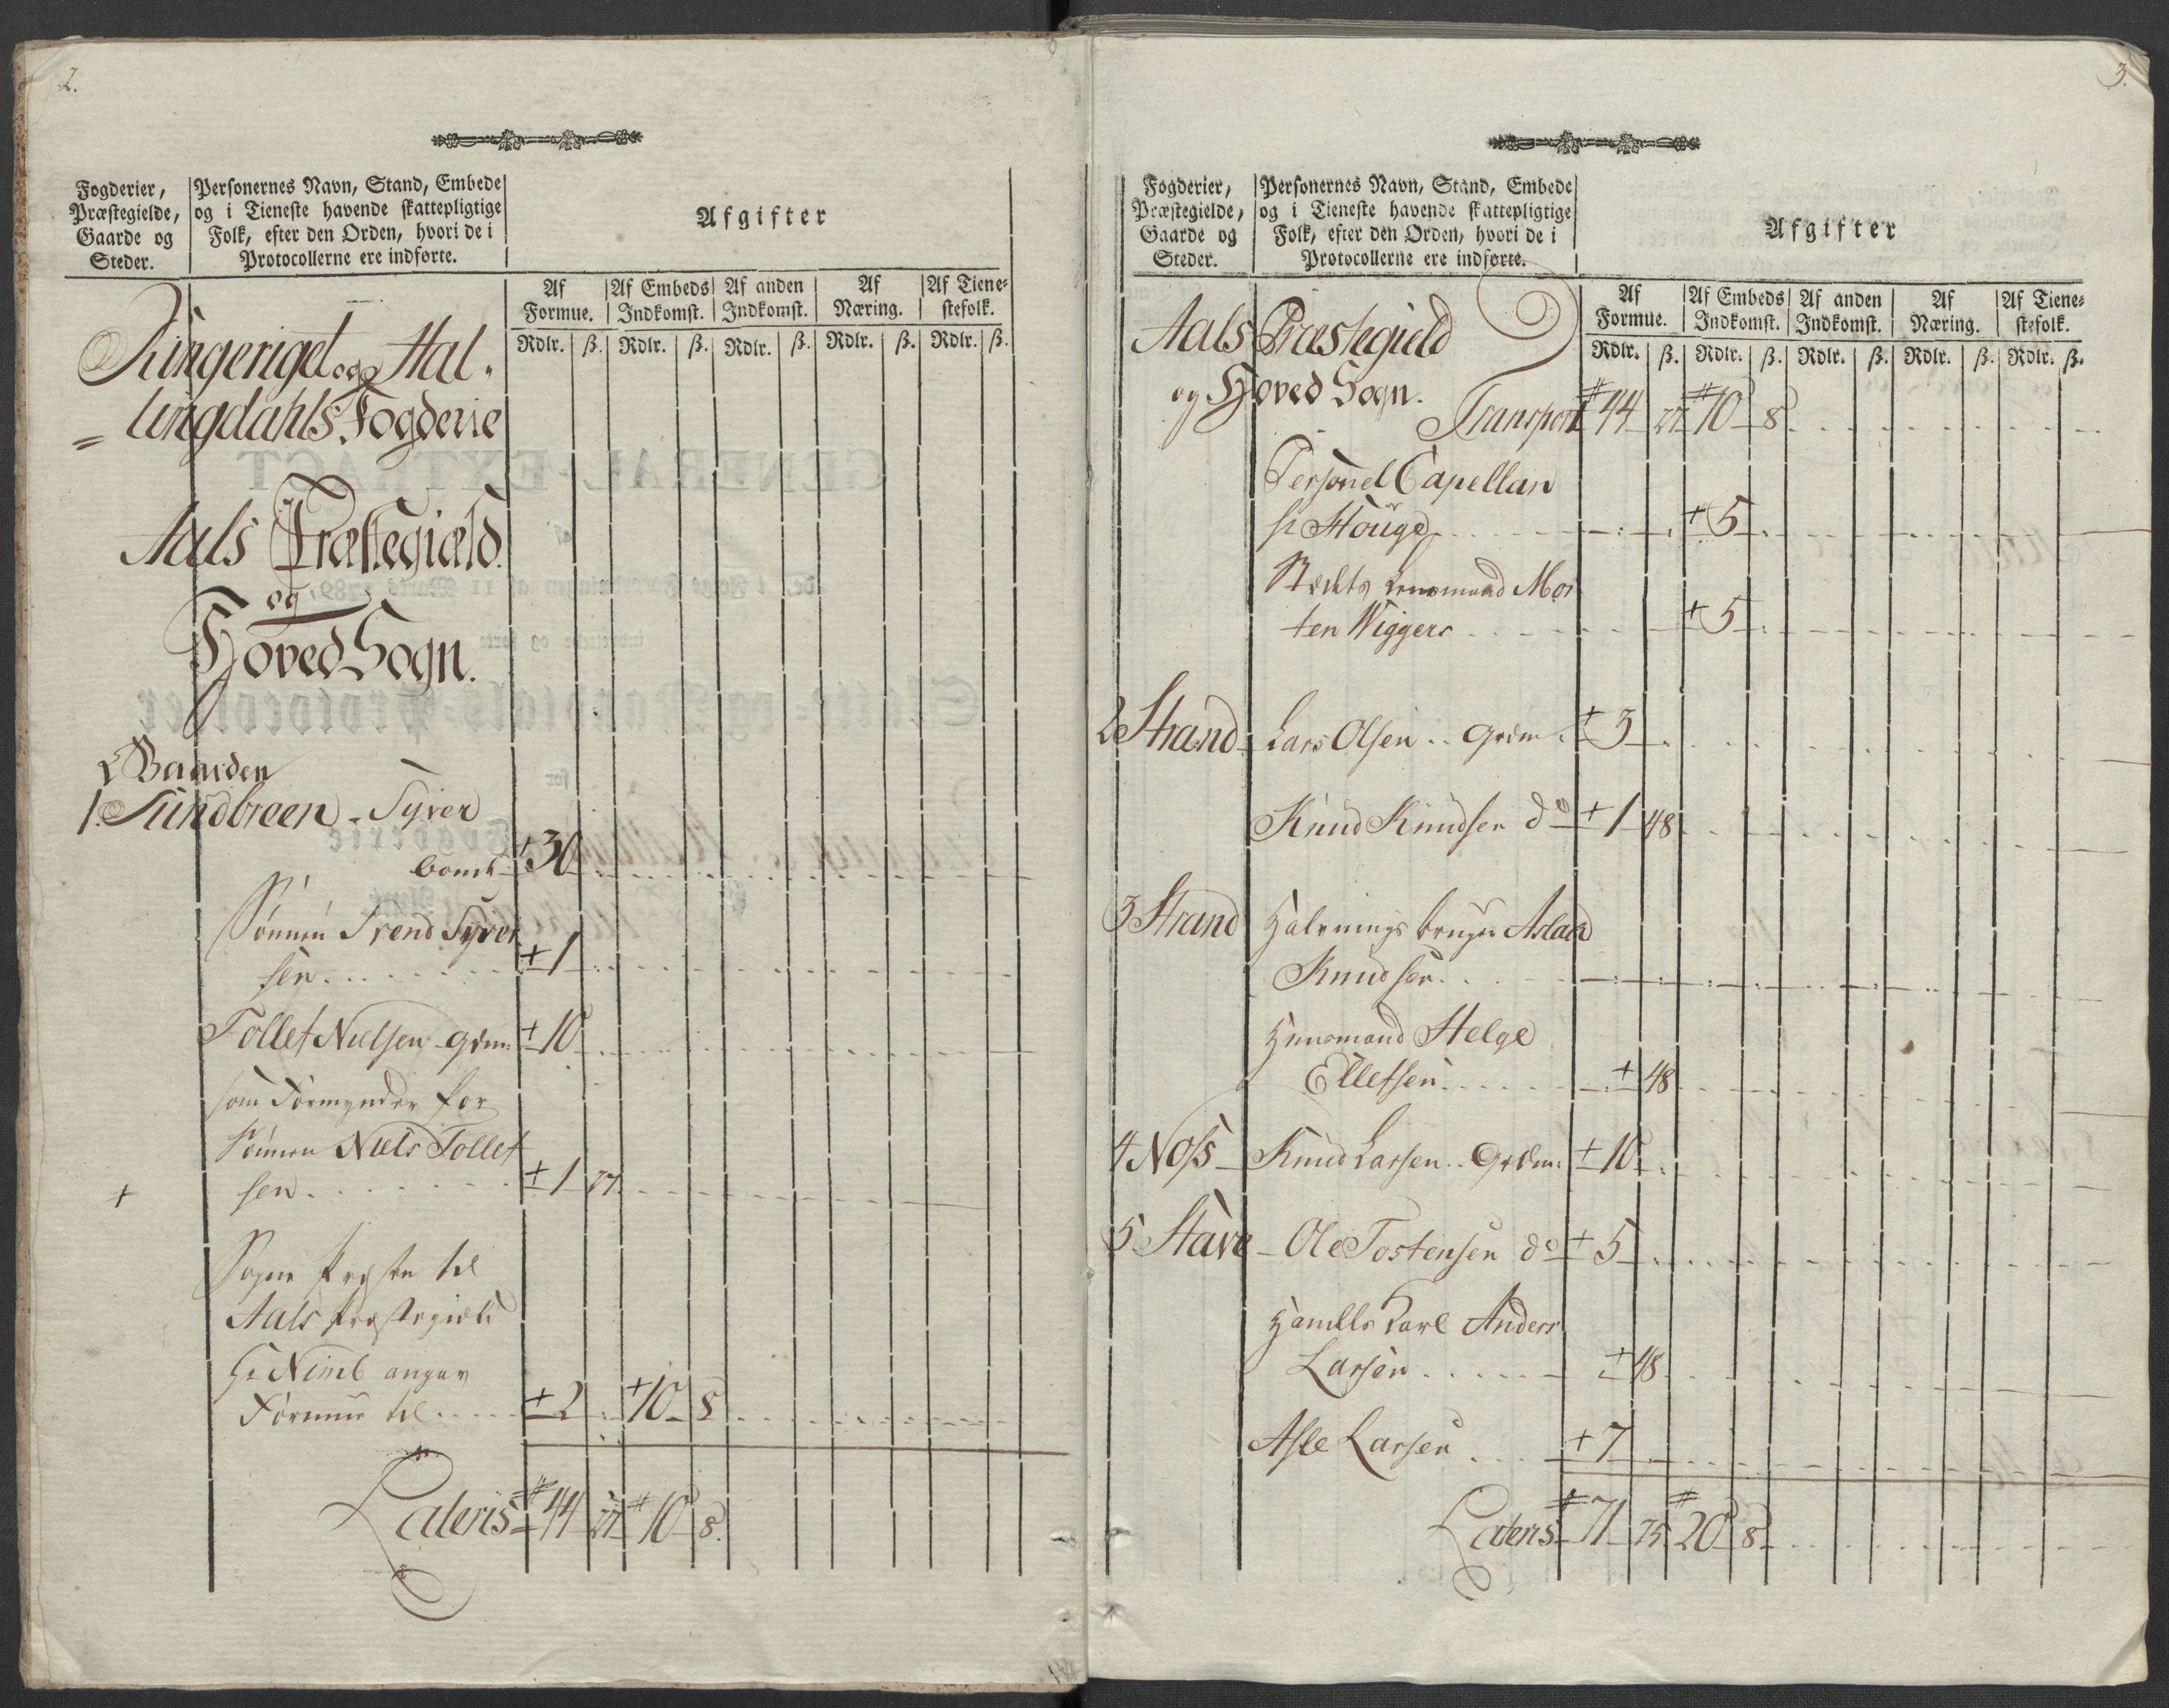 2.
Fogderier,
Præstegielde,
Gaarde og
Steder.
Personernes Navn, Stand, Embede
og i Tieneste havende skattepligtige
Folk, efter den Orden, hvori de i
Protocollerne ere indførte.
Afgifter
Af Formue. Af Embeds Indkomst. Af anden Indkomst. Af Næring. Af Tiene-stefolk.
Rdlr. ß. Rdlr. ß. Rdlr. ß. Rdlr. ß. Rdlr. ß.
Ringeriget og Hal-
lingdahls Fogderie
Aals Præstegiæld
og
Hoved Sogn.
Gaarden
1. Sundbreen - Syver
30
Sønnen Trend Syver
sen + 1
Tollef Nielsen grdm: + 10
som Formynder for
Sønnen Niels Tollef
sen + 1 27
+
Sogne Præsten til
Aals Præstegiæld
Hr Nimb angav
Formue til + 2 + 10 8
Lateris # 44 27 # 10 8.
3.
Fogderier,
Præstegielde,
Gaarde og
Steder.
Personernes Navn, Stand, Embede
og i Tieneste havende skattepligtige
Folk, efter den Orden, hvori de i
Protocollerne ere indførte.
Afgifter
Af Formue. Af Embeds Indkomst. Af anden Indkomst. Af Næring. Af Tiene-stefolk.
Rdlr. ß. Rdlr. ß. Rdlr. ß. Rdlr. ß. Rdlr. ß.
Aals Præstegield
og Hoved Sogn.
Transport # 44 27 # 10 8
Personel Capellan
Hr Houge + 5
Lensmand Mor
ten Wiggers + 5
2 Strand Lars Olsen grdm: + 3
Knud Knudsen do + 1 48
3 Strand Halvnings bruger Aslack
Knudsen
Huusmand Helge
Ellefsen + 48
4 Noss Knud Larsen Grdm: + 10
5 Stave Ole Tostensen do + 5
Handels Karl Anders
Larsen + 48
Asle Larsen + 7
Lateris # 71 75 # 20 8